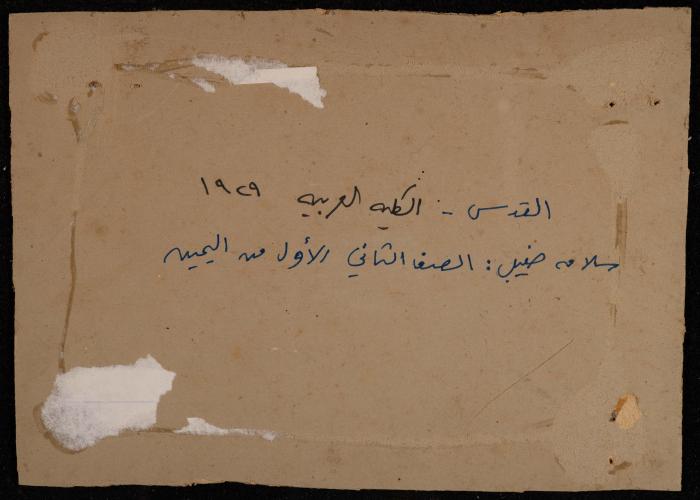 القدس - الكليه العربيه ١٩٢٩
سلامه خليل: الصف الثاني الأول من اليمين